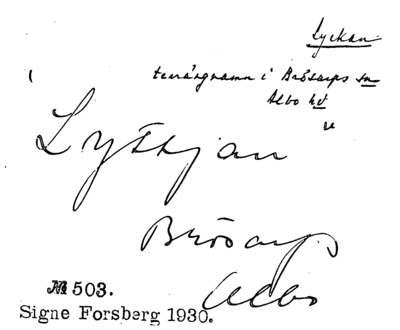 Lyckan
terrängnamn i Brösarps sn
Albo hd
Lyckjan
Brösarp
Albo
№ 503.
Signe Forsberg 1930.